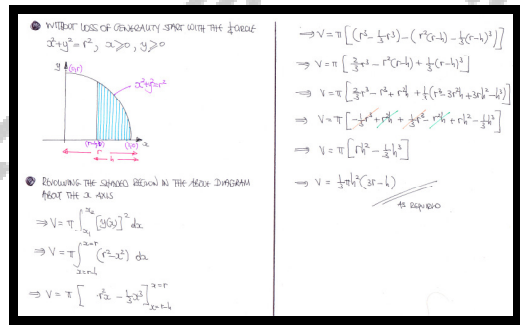 WITHOUT LOSS OF GENERALITY START WITH THE ¼ CIRCLE
x²+y²=r², x≥0, y≥0
y
(0,r)
x²+y²=r²
(r-h,0)
(r,0)
x
r
h
REVOLVING THE SHADED REGION IN THE ABOVE DIAGRAM
ABOUT THE x AXIS
⇒ V = π ∫_{x₁}^{x₂} [y(x)]² dx
⇒ V = π ∫_{x=r-h}^{x=r} (r²-x²) dx
⇒ V = π [ r²x - ⅓x³ ]_{x=r-h}^{x=r}
⇒ V = π [(r³ - ⅓r³) - (r²(r-h) - ⅓(r-h)³)]
⇒ V = π [ ⅔r³ - r²(r-h) + ⅓(r-h)³ ]
⇒ V = π [ ⅔r³ - r³ + r²h + ⅓(r³ - 3r²h + 3rh² - h³) ]
⇒ V = π [ -⅓r³ + r²h + ⅓r³ - r²h + rh² - ⅓h³ ]
⇒ V = π [ rh² - ⅓h³ ]
⇒ V = ⅓πh²(3r - h)
AS REQUIRED